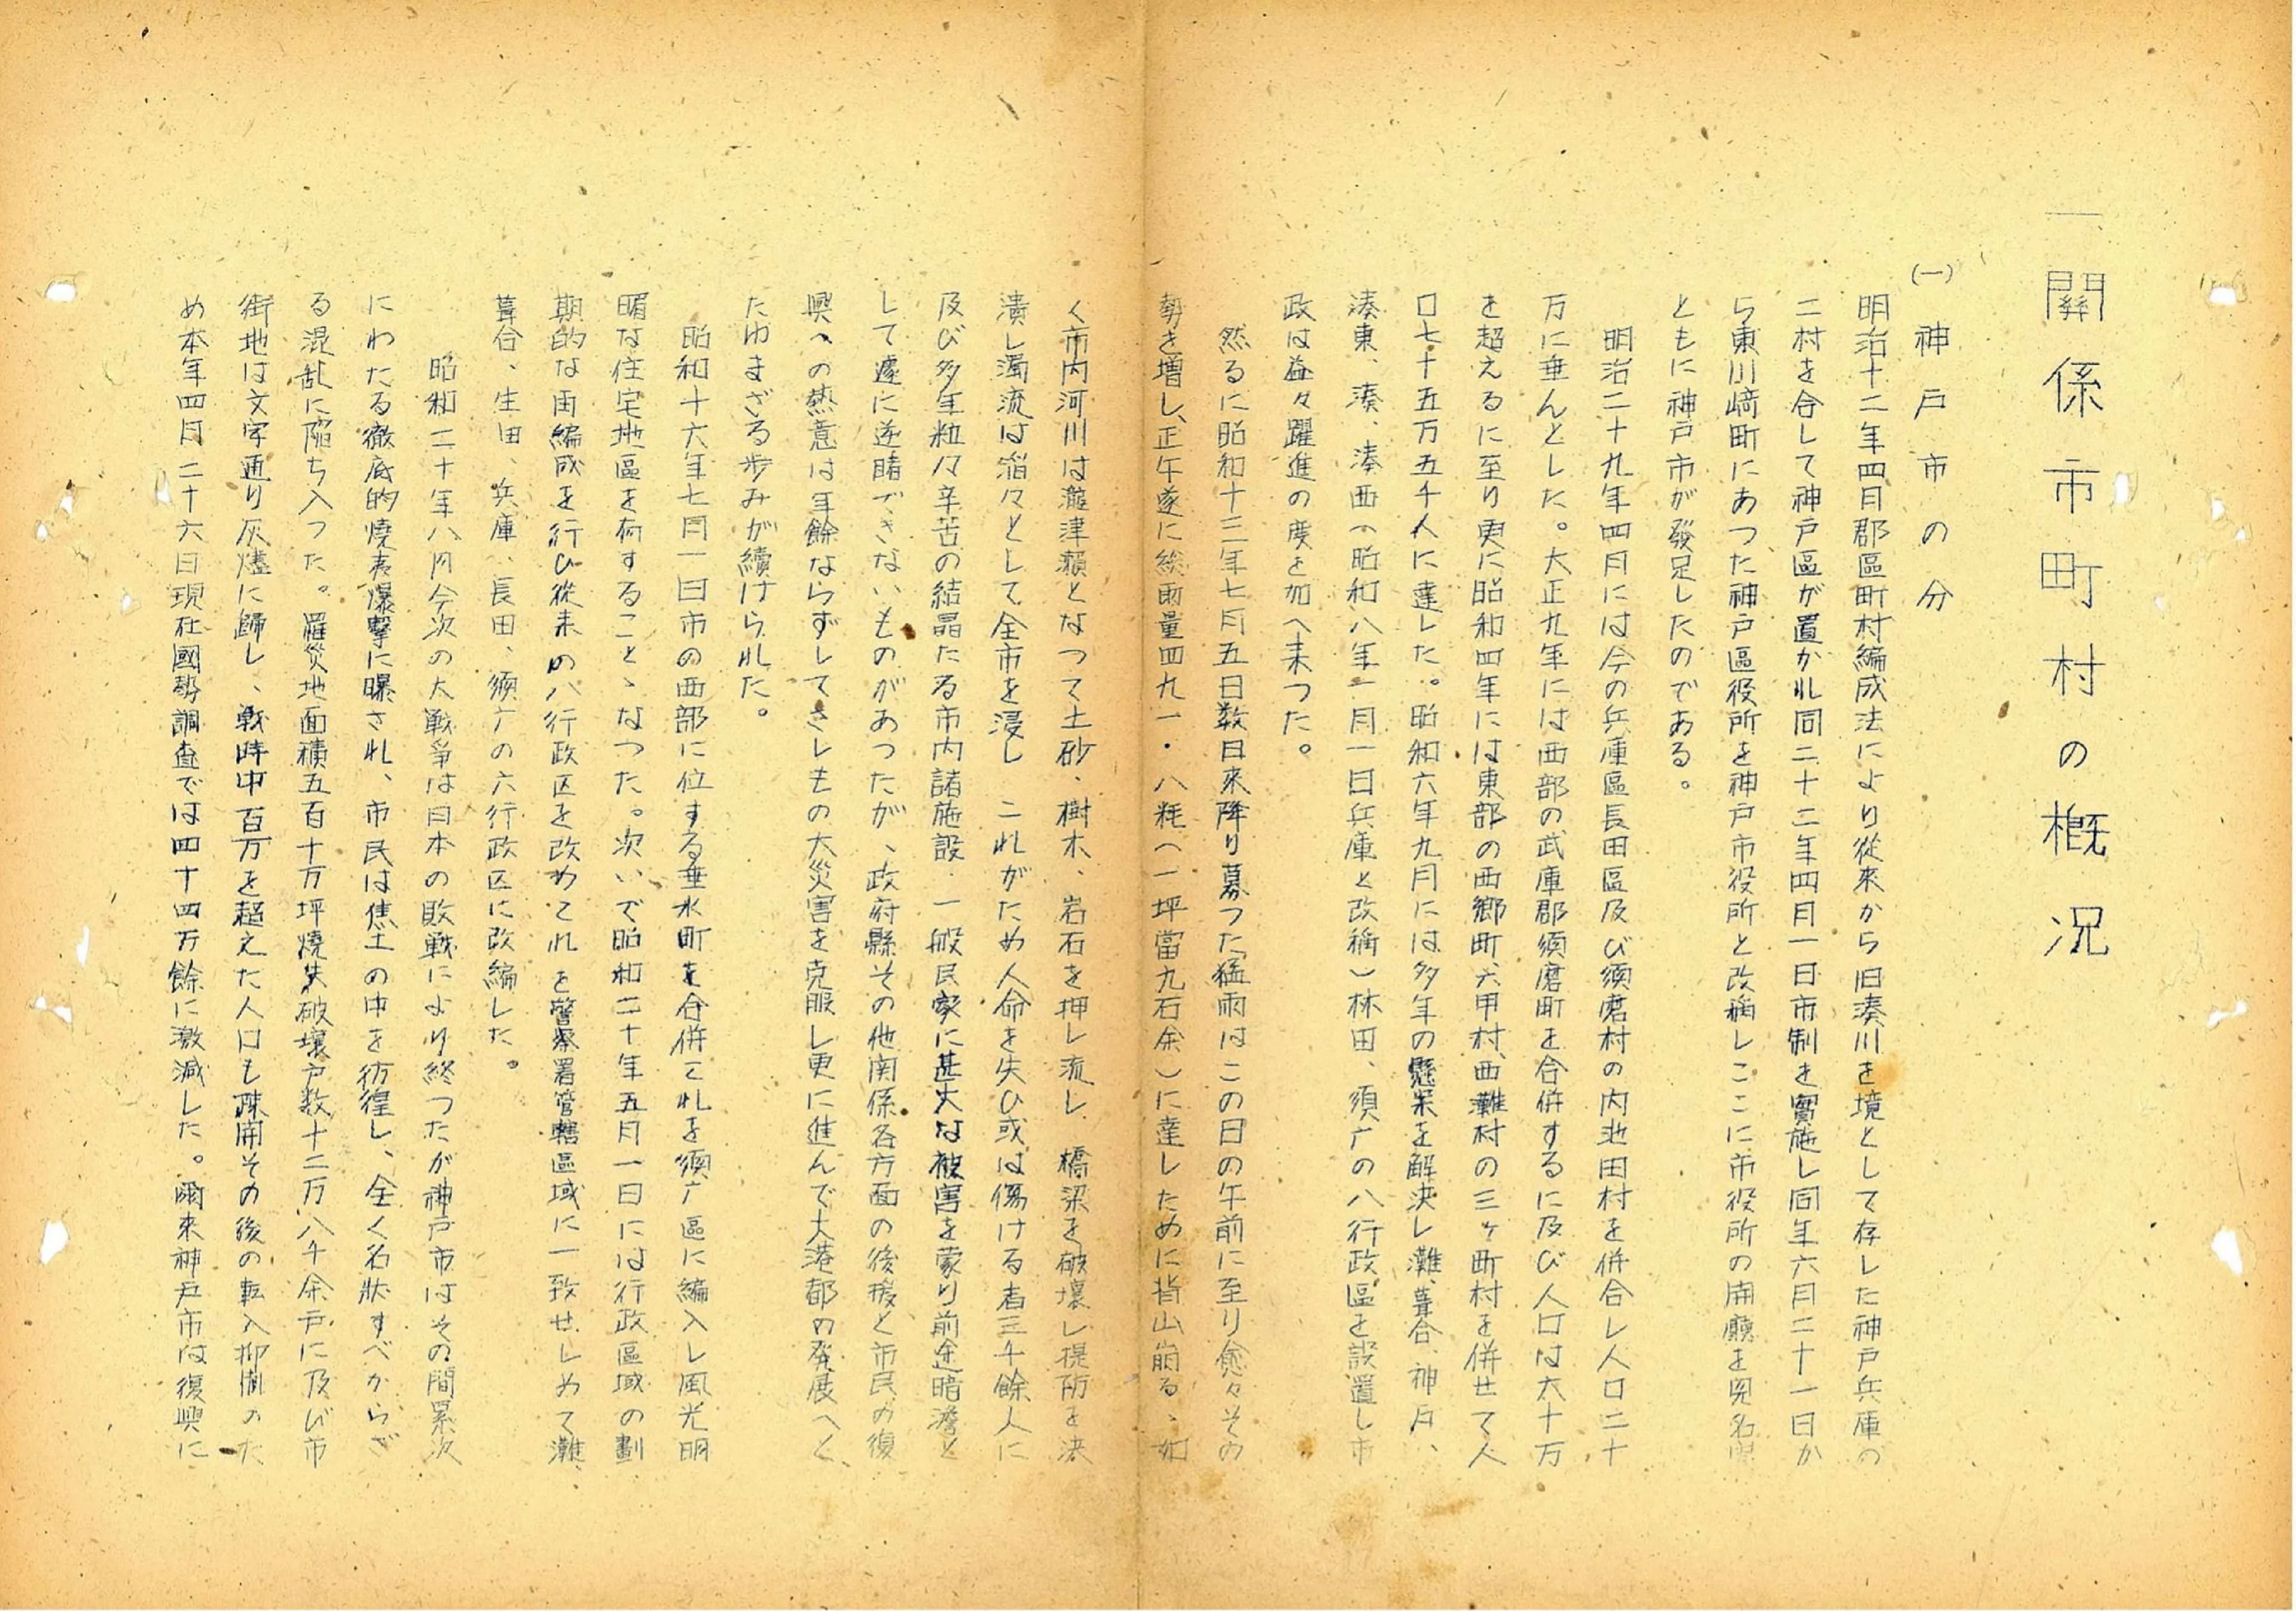 一 關係市町村の概況
(一) 神戸市の分
明治十二年四月郡區町村編成法により従來から旧湊川を境として存した神戸兵庫の
二村を合して神戸區が置かれ同二十二年四月一日市制を實施し同年六月二十一日か
ら東川﨑町にあつた神戸區役所を神戸市役所と改稱しここに市役所の開廳を見名實
ともに神戸市が發足したのである。
明治二十九年四月には今の兵庫區長田區及び須磨村の内池田村を併合し人口二十
万に垂んとした。大正九年には西部の武庫郡須磨町を合併するに及び人口は六十万
を超えるに至り更に昭和四年には東部の西郷町六甲村西灘村の三ヶ町村を併せて人
口七十五万五千人に達した。昭和六年九月には多年の懸案を解決し灘、葺合、神戸、
湊東、湊、湊西(昭和八年一月一日兵庫と改稱)林田、須广の八行政區を設置し市
政は益々躍進の度を加へ来つた。
然るに昭和十三年七月五日数日来降り募つた猛雨はこの日の午前に至り愈々その
勢を増し、正午遂に総雨量四九一・八粍(一坪當九石余)に達しために皆山崩るゝ如
く市内河川は瀧津瀬となつて土砂、樹木、岩石を押し流し 橋梁を破壊し堤防を決
潰し濁流は滔々として全市を浸し これがため人命を失ひ或は傷ける者三千餘人に
及び多年粒々辛苦の結晶たる市内諸施設・一般民家に甚大な被害を蒙り前途暗澹と
して遽に逆睹できないものがあつたが、政府縣その他関係各方面の後援と市民の復
興への熱意は年餘ならずしてさしもの大災害を克服し更に進んで大港都の発展へと
たゆまざる歩みが續けられた。
昭和十六年七月一日市の西部に位する垂水町を合併これを須广區に編入し風光明
媚な住宅地區を有することゝなつた。次いで昭和二十年五月一日には行政區域の劃
期的な再編成を行ひ従来の八行政区を改めてれを警察署管轄區域に一致せしめて灘、
葺合、生田、兵庫、長田、須广の六行政区に改編した。
昭和二十年八月今次の大戦爭は日本の敗戦により終つたが神戸市はその間累次
にわたる徹底的燒夷爆撃に曝され、市民は焦土の中を彷徨し、全く名狀すべからざ
る混乱に陥ち入つた。罹災地面積五百十万坪燒失破壊戸数十二万八千余戸に及び市
街地は文字通り灰燼に歸し、戦時中百万を超えた人口も疎開その後の転入抑制のた
め本年四月二十六日現在國勢調査では四十四万餘に激減した。爾来神戸市は復興に